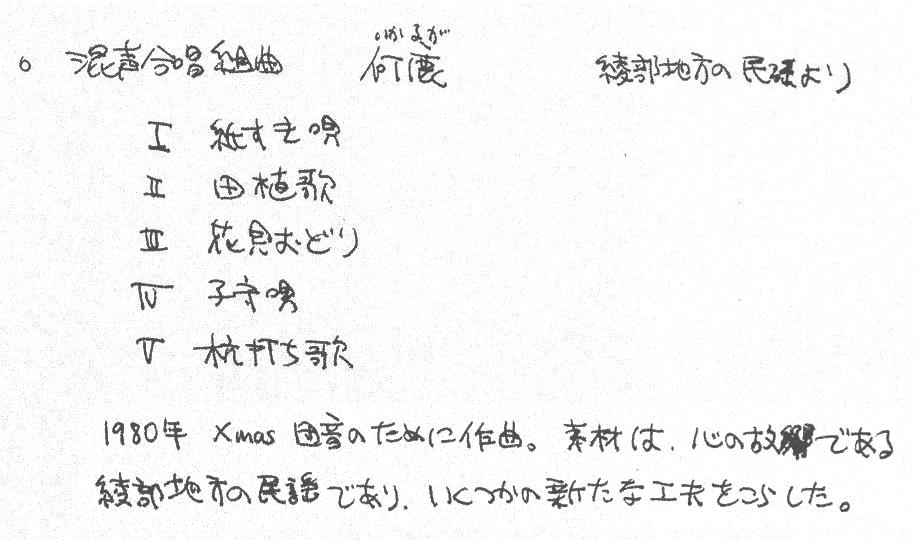 ○ 混声合唱組曲 何鹿 綾部地方の民謡より
いかるが
I 紙すき唄
II 田植歌
III 花見おどり
IV 子守唄
V 杭打ち歌
1980年 Xmas 団音のために作曲。素材は、心の故郷である
綾部地方の民謡であり、いくつかの新たな工夫をこらした。